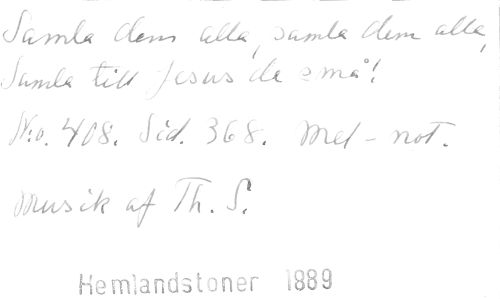 Samla dem alla, samla dem alla,
Samla till Jesus de små!
No. 408. Sid. 368. Mel-not.
Musik af Th. S.
Hemlandstoner 1889